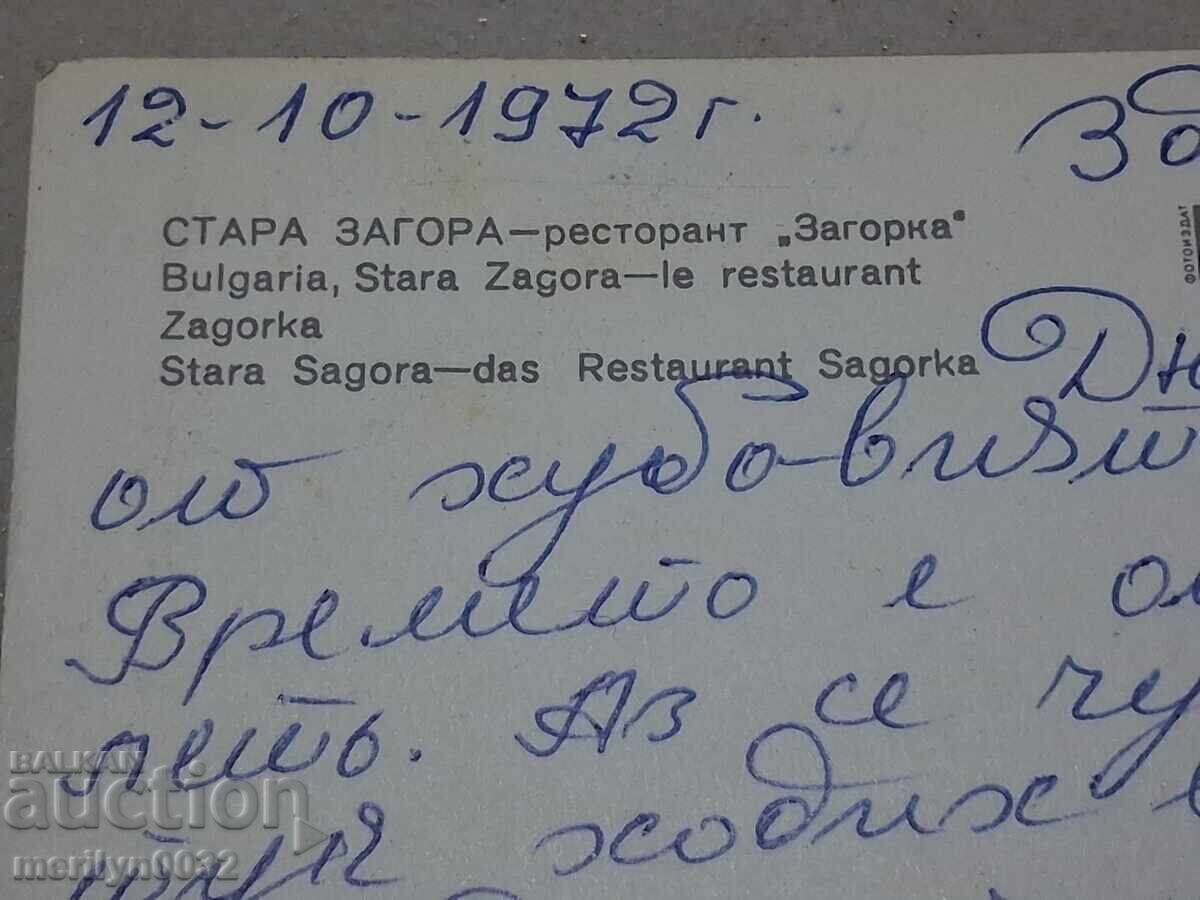 12-10-1972 г.
СТАРА ЗАГОРА—ресторант „Загорка“
Bulgaria, Stara Zagora—le restaurant
Zagorka
Stara Sagora—das Restaurant Sagorka
ФОТОИЗДАТ
от хубо-вият
Времето е
Аз се
ходих
BALKAN
auction
merilyn0032